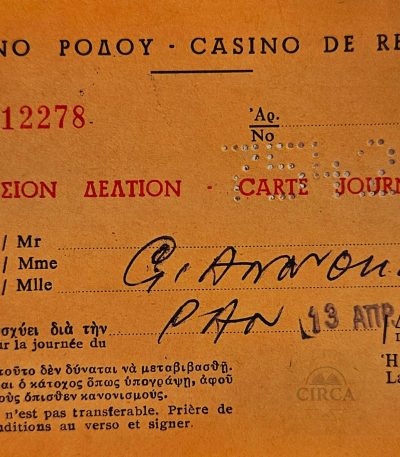 ΝΟ ΡΟΔΟΥ - CASINO DE R
12278
Ἀρ.
No
ΣΙΟΝ ΔΕΛΤΙΟΝ - CARTE JOURN
/ Mr
/ Mme
/ Mlle
GIANNOU
PAN
13 ΑΠΡ
σχύει διὰ τὴν
ur la journée du
τοῦτο δὲν δύναται νὰ μεταβιβασθῇ.
αι ὁ κάτοχος ὅπως ὑπογράψῃ, ἀφοῦ
οὺς ὄπισθεν κανονισμούς.
n'est pas transferable. Prière de
nditions au verso et signer.
Ἡ
La
CIRCA